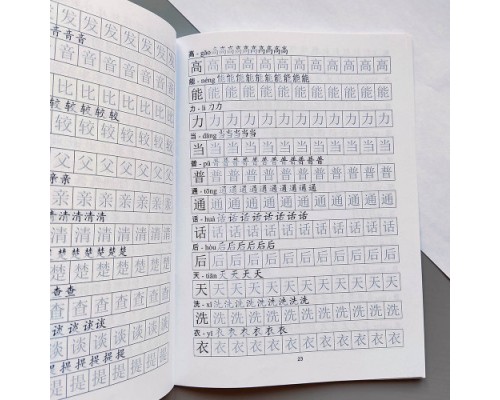 发发发发发发发
音音音
音音音音音音
比比比比比比
较较较较较
较较较较较较
父父父父父父
亲亲
亲亲亲亲亲亲
清清清清清
清清清清清清
楚楚楚楚楚楚
楚楚楚楚楚楚
查查
查查查查查查
谈谈谈谈
谈谈谈谈谈谈
提提提提提
提提提提提提
高 - gāo 高高高高高高高高高高
高高高高高高高高高高高
能 - néng 能能能能能能能能能能
能能能能能能能能能能能
力 - lì 力力
力力力力力力力力力力力
当 - dāng 当当当当当当
当当当当当当当当当当当
普 - pǔ 普普普普普普普普普普普普
普普普普普普普普普普普
通 - tōng 通通通通通通通通通通
通通通通通通通通通通通
话 - huà 话话话话话话话话
话话话话话话话话话话话
后 - hòu 后后后后后后
后后后后后后后后后后后
天 - tiān 天天天天
天天天天天天天天天天天
洗 - xǐ 洗洗洗洗洗洗洗洗洗
洗洗洗洗洗洗洗洗洗洗洗
衣 - yī 衣衣衣衣衣衣
衣衣衣衣衣衣衣衣衣衣衣
23